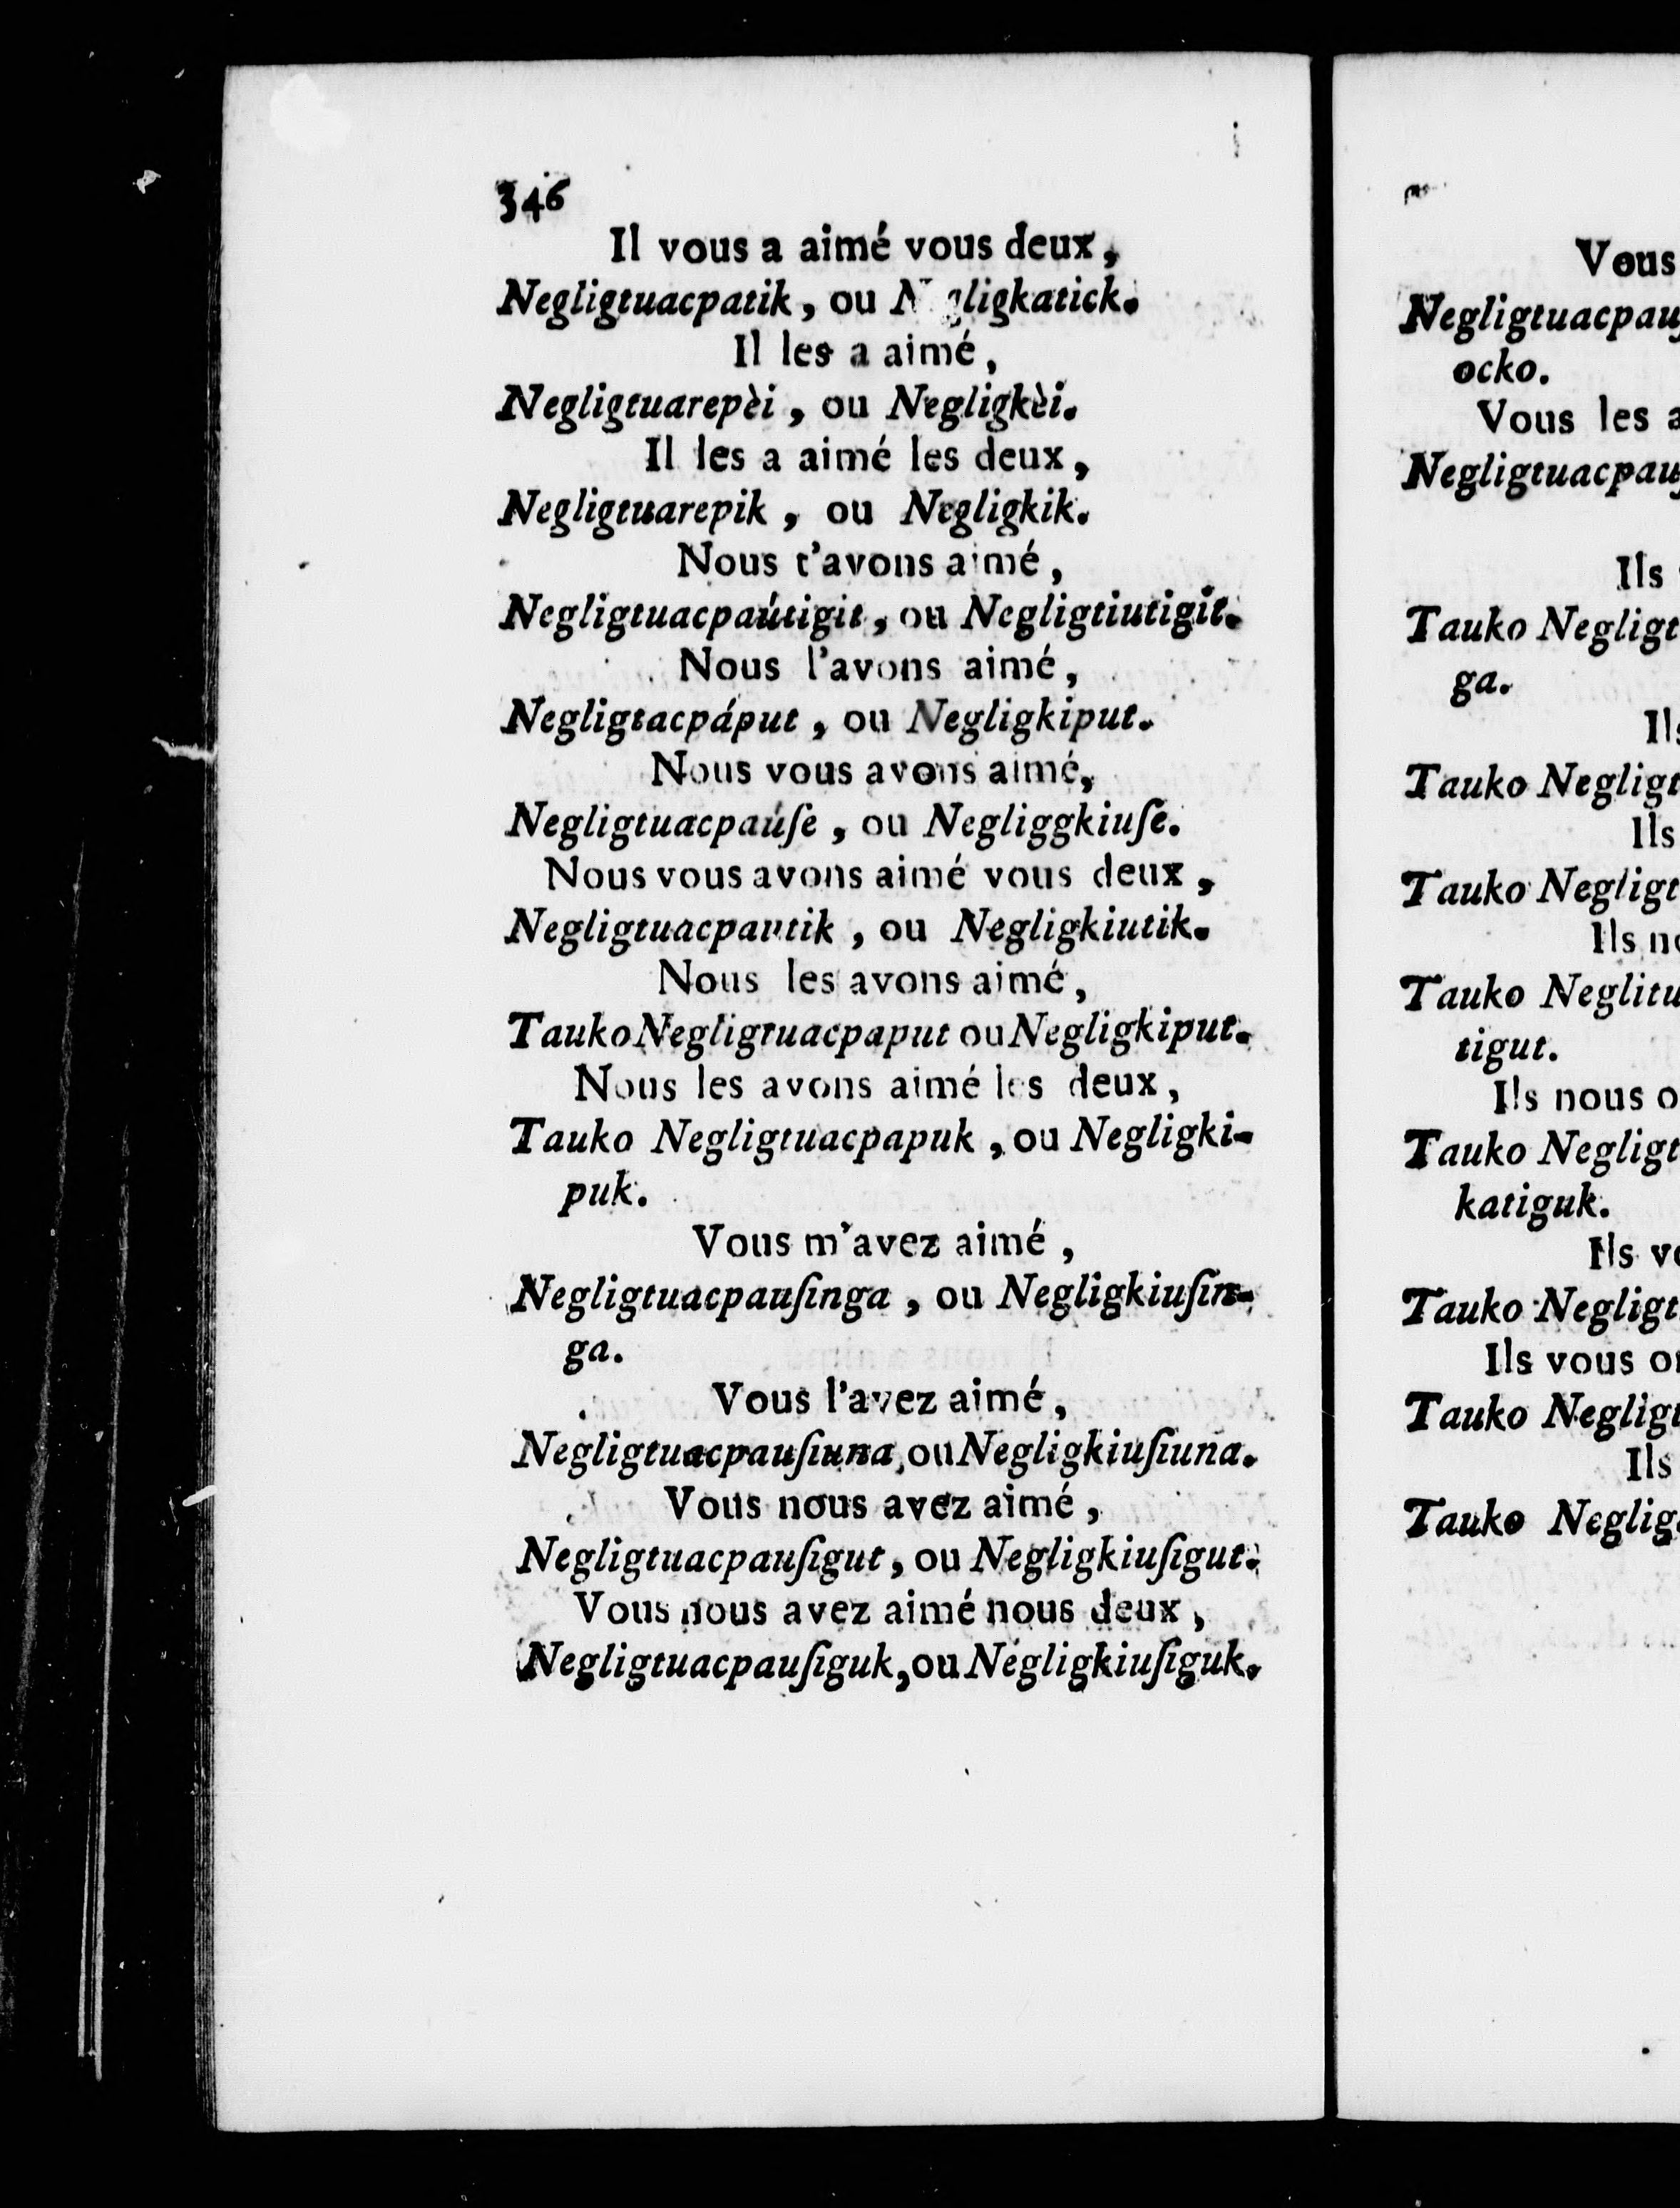 346
Il vous a aimé vous deux,
Negligtuacpatik, ou Negligkatick.
Il les a aimé,
Negligtuarepèi, ou Negligkèi.
Il les a aimé les deux,
Negligtuarepik, ou Negligkik.
Nous t'avons aimé,
Negligtuacpaútigit, ou Negligtiutigit.
Nous l'avons aimé,
Negligtacpáput, ou Negligkiput.
Nous vous avons aimé,
Negligtuacpaúſe, ou Negliggkiuſe.
Nous vous avons aimé vous deux,
Negligtuacpautik, ou Negligkiutik.
Nous les avons aimé,
Tauko Negligtuacpaput ou Negligkiput.
Nous les avons aimé les deux,
Tauko Negligtuacpapuk, ou Negligki-
puk.
Vous m'avez aimé,
Negligtuacpauſinga, ou Negligkiuſin-
ga.
Vous l'avez aimé,
Negligtuacpauſiuna, ou Negligkiuſiuna.
Vous nous avez aimé,
Negligtuacpauſigut, ou Negligkiuſigut.
Vous nous avez aimé nous deux,
Negligtuacpauſiguk, ou Negligkiuſiguk.
Vous
Negligtuacpau
ocko.
Vous les a
Negligtuacpau
Ils
Tauko Negligt
ga.
Ils
Tauko Negligt
Ils
Tauko Negligt
Ils no
Tauko Neglitu
tigut.
Ils nous o
Tauko Negligt
katiguk.
Ils vo
Tauko Negligt
Ils vous on
Tauko Negligt
Ils
Tauko Neglig